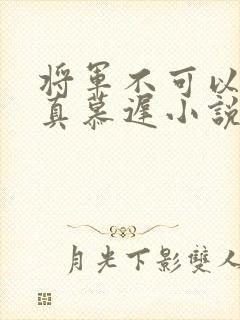 將軍不可以
真慕遲小說
月光下影雙人